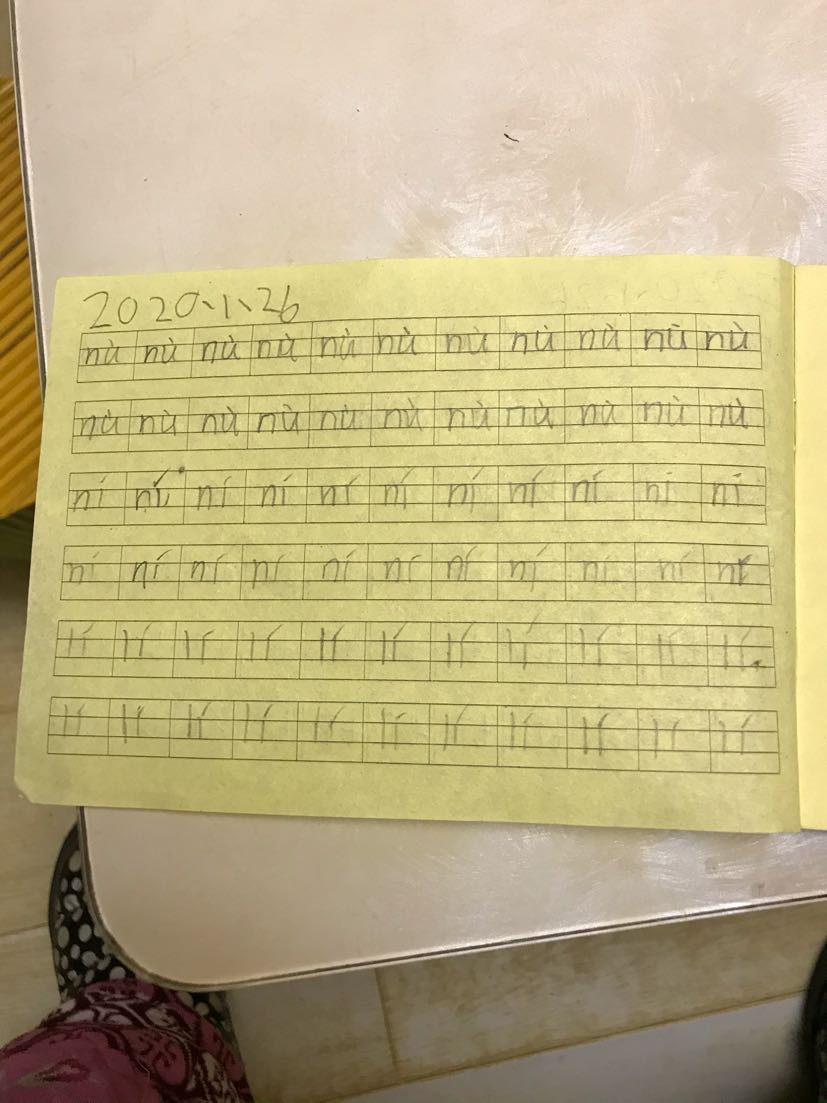 2020、1、26
nù nù nù nù nù nù nù nù nù nū nù
nù nù nù nù nù nù nù nù nù nù nù
ní ní ní ní ní ní ní ní ní ní ní
ní ní ní ní ní ní ní ní ní ní ní
lí lí lí lí lí lí lí lí lí lí lí
lí lí lí lí lí lí lí lí lí lí lí